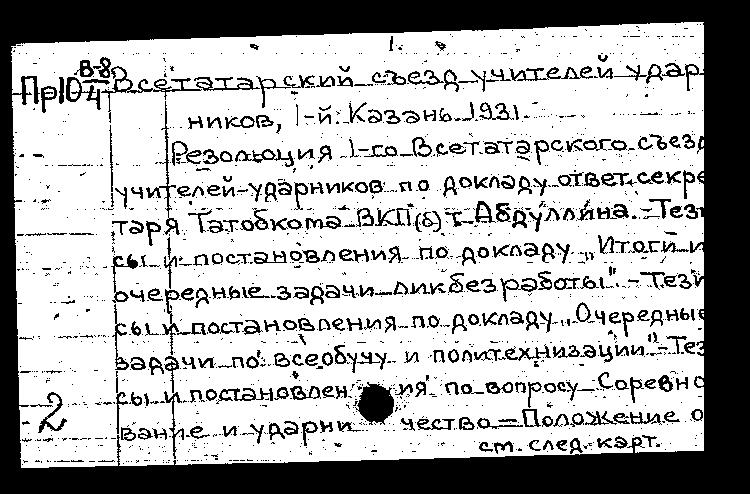 1.
В-8
Пр10 4 Всетатарский съезд учителей удар
ников, 1-й. Казань 1931.
Резолюция 1-го Всетатарского съезд
учителей-ударников по докладу ответ. секре
таря Татобкома ВКП(б) т. Абдуллина. - Тези
сы и постановления по докладу „Итоги и
очередные задачи ликбезработы". - Тези
сы и постановления по докладу „Очередные
задачи по всеобучу и политехнизации" - Тез
сы и постановления по вопросу Соревно
вание и ударничество - Положение о
2
см. след. карт.